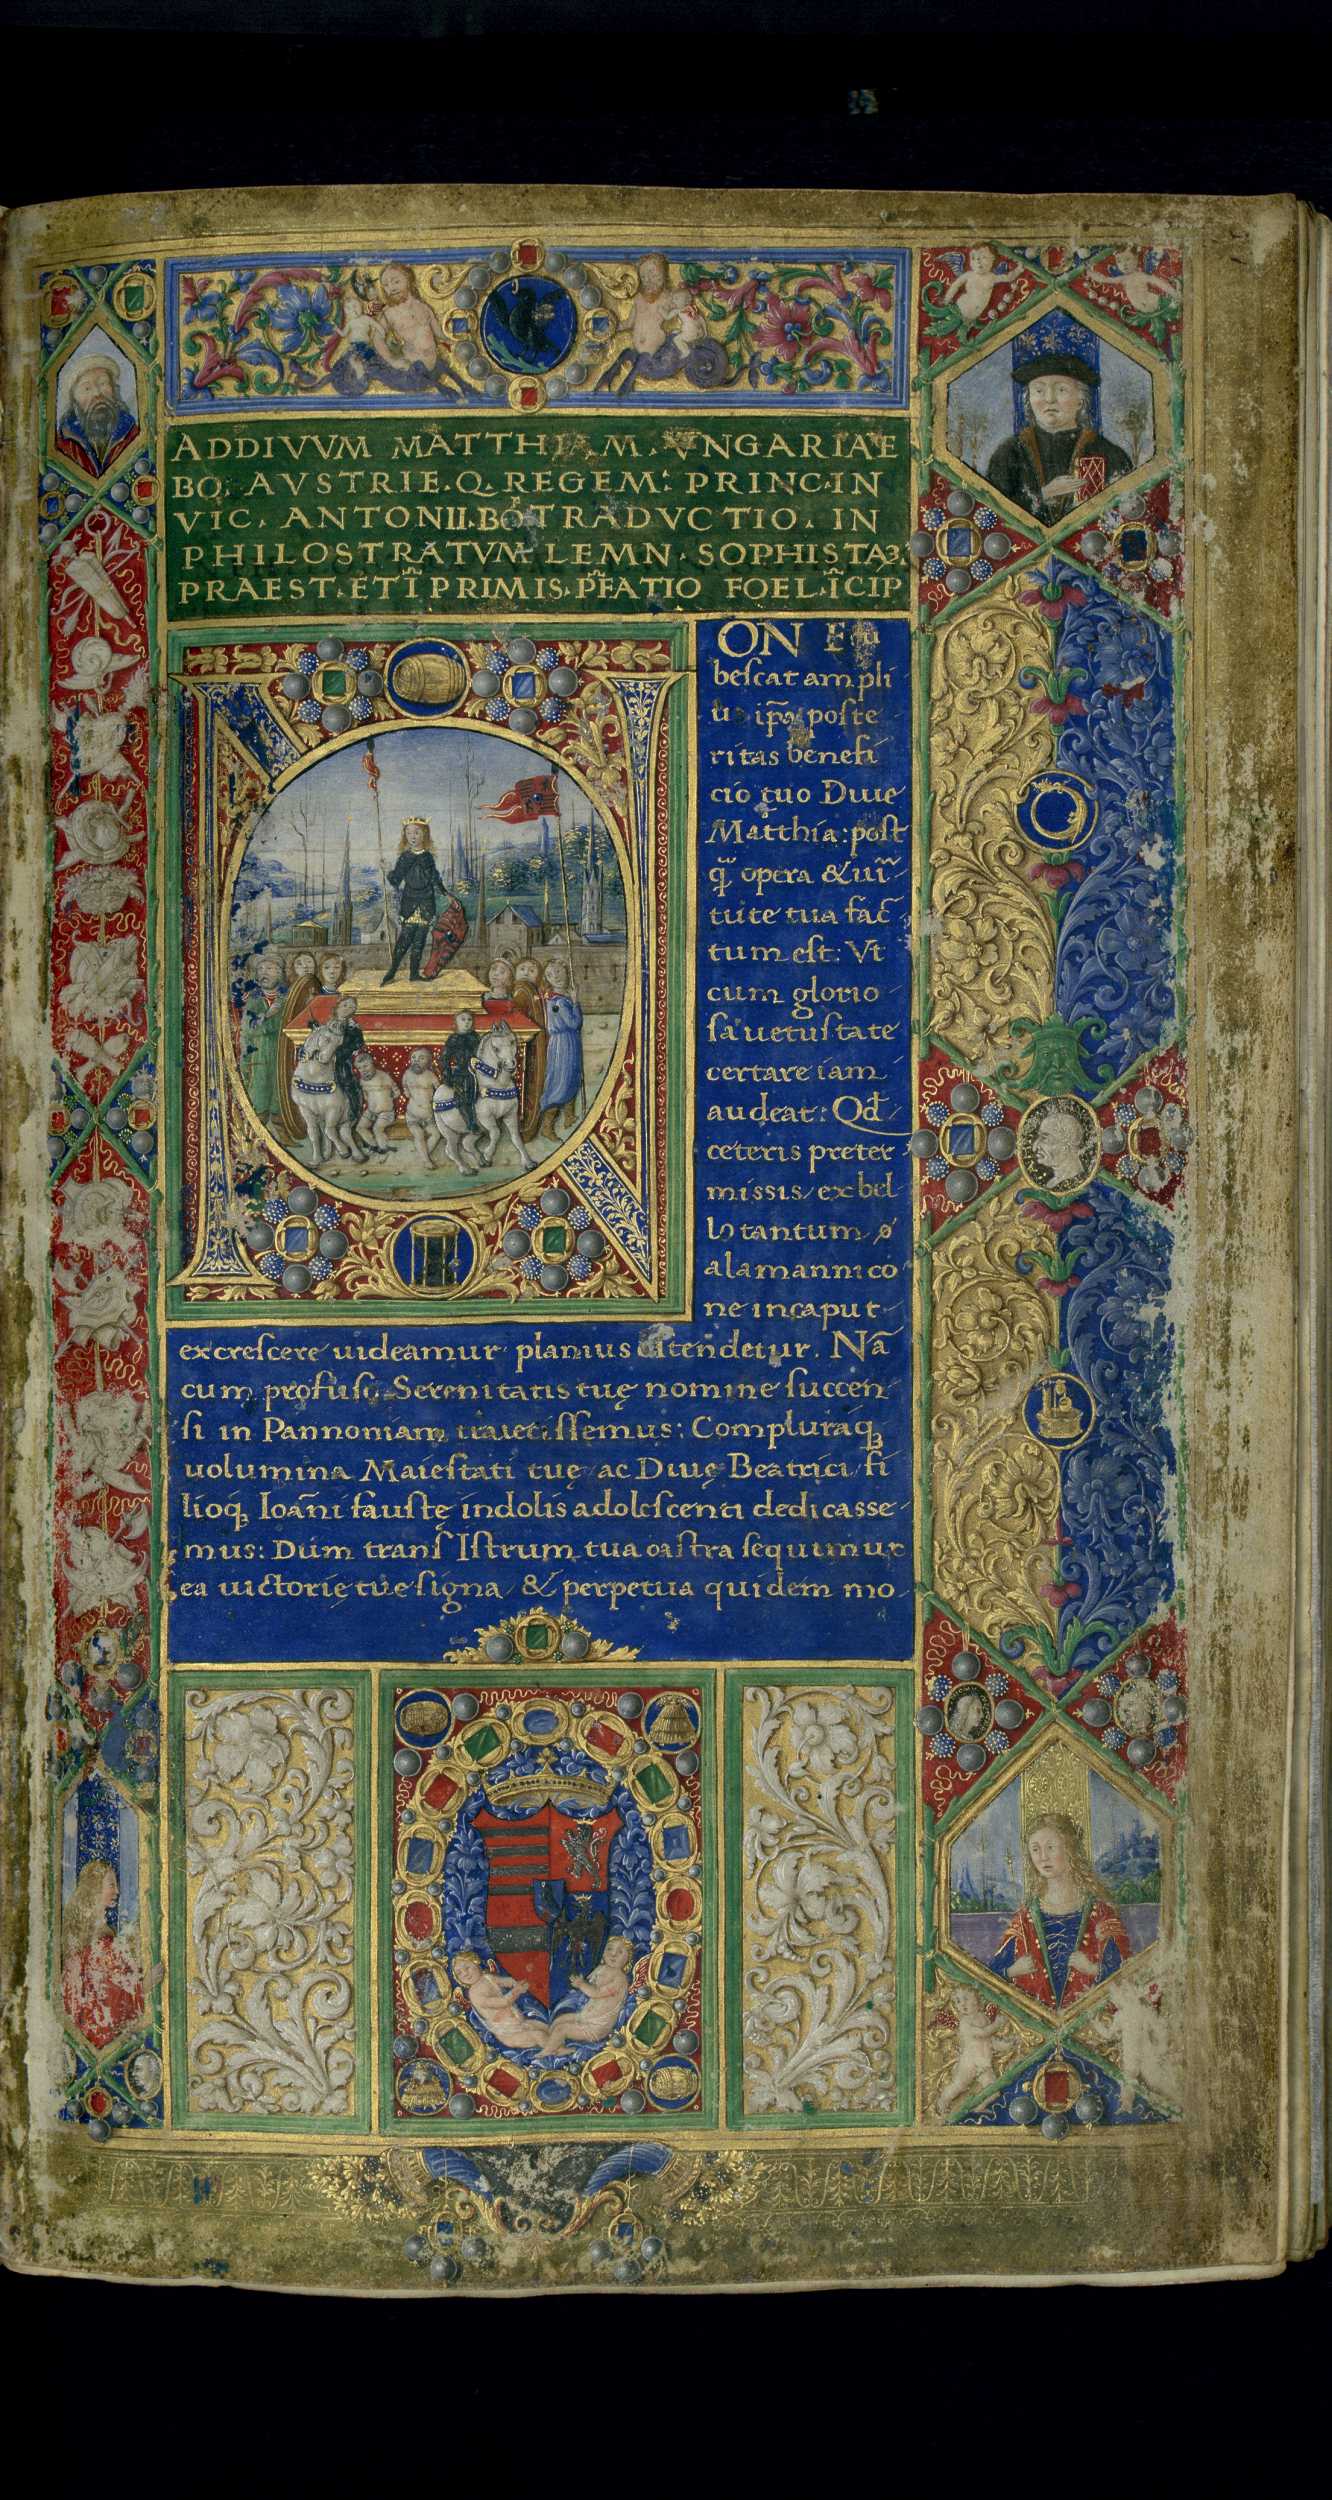 ADDIVVM MATTHIAM. VNGARIAE
BO. AVSTRIE. Q. REGEM: PRINC. IN
VIC. ANTONII. BŌ. TRADVCTIO. IN
PHILOSTRATVM LEMN. SOPHISTAꝜ
PRAEST. ET Ī PRIMIS. PFATIO FOEL. ĪCIP
ON
bescat ampli
ip̄a poste
ritas benefi
cio tuo Diue
Matthia: post
q̄ opera & uir̄
tute tua fac̄
tum est: Vt
cum glorio
sa uetustate
certare iam
audeat: Qđ
ceteris preter
missis ex bel
lo tantum
alamannico
ne in caput
excrescere uideamur planius ostendetur. Nā
cum profuso Serenitatis tuę nomine succen
si in Pannoniam traiecissemus: Compluraq̨
uolumina Maiestati tuę ac Diuę Beatrici fi
lioq̨ Ioāni faustę indolis adolescenti dedicasse
mus: Dum trans Istrum tua castra sequimur
ea uictorię tue signa & perpetua quidem mo